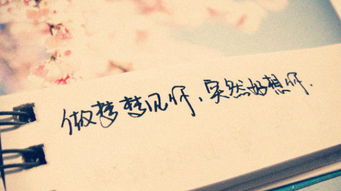 做梦梦见你，突然好想你.